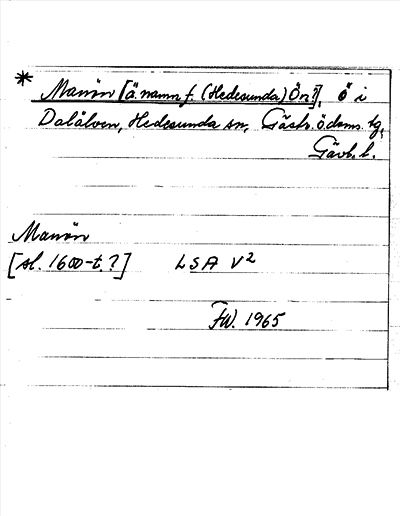 * Manön [ä. namn f. (Hedesunda) Ön?], ö i
Dalälven, Hedesunda sn, Gästr. ö. doms. tg,
Gävl. l.
Manön
[sl. 1600-t.?] LSA V2
FW. 1965